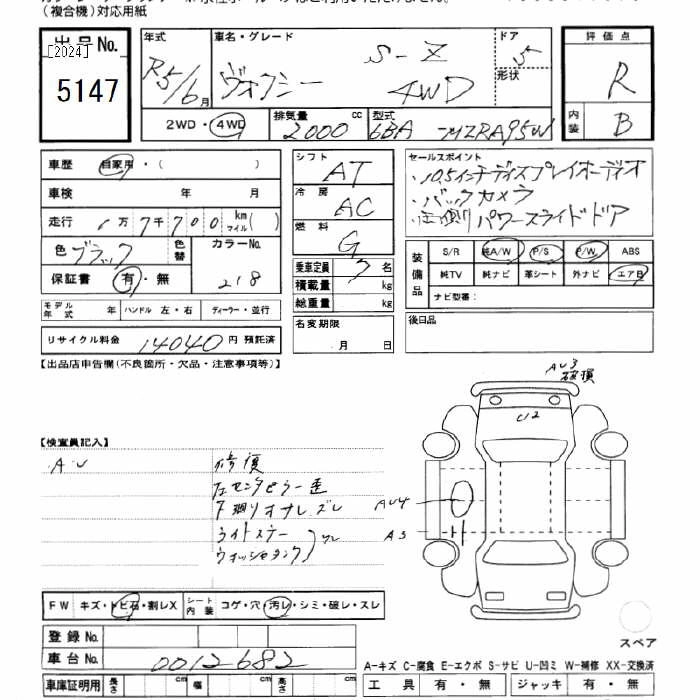 （複合機）対応用紙
出品No.
[2024]
5147
年式
R5/6月
車名・グレード
S-Z
ヴォクシー 4WD
ドア
5
形状
評価点
R
内装
B
2WD・4WD
排気量
2000 cc
型式
6BA -MZRA95W
車歴 自家用・（ ）
車検 年 月
走行 1万7千700 km マイル( )
色 ブラック
色替
カラーNo.
218
保証書 有・無
モデル年式 年 ハンドル 左・右 ディーラー・並行
リサイクル料金 14040 円 預託済
シフト
AT
冷房
AC
燃料
G
乗車定員 7 名
積載量 kg
総重量 kg
名変期限
月 日
セールスポイント
・10.5インチディスプレイオーディオ
・バックカメラ
・左側パワースライドドア
装備品
S/R 純A/W P/S P/W ABS
純TV 純ナビ 革シート 外ナビ エアB
ナビ型番：
後日品
【出品店申告欄（不良箇所・欠品・注意事項等）】
【検査員記入】
A・U
修復
左センタピラー歪
ライトステー
ウォッシャタンク
AU3
破損
U2
AU4
A3
FW キズ・トビ石・割レX
シート内装 コゲ・穴・汚レ・シミ・破レ・スレ
登録No.
車台No. 0012682
車庫証明用 長さ cm 幅 cm 高さ cm
スペア
A-キズ C-腐食 E-エクボ S-サビ U-凹ミ W-補修 XX-交換済
工具 有・無 ジャッキ 有・無